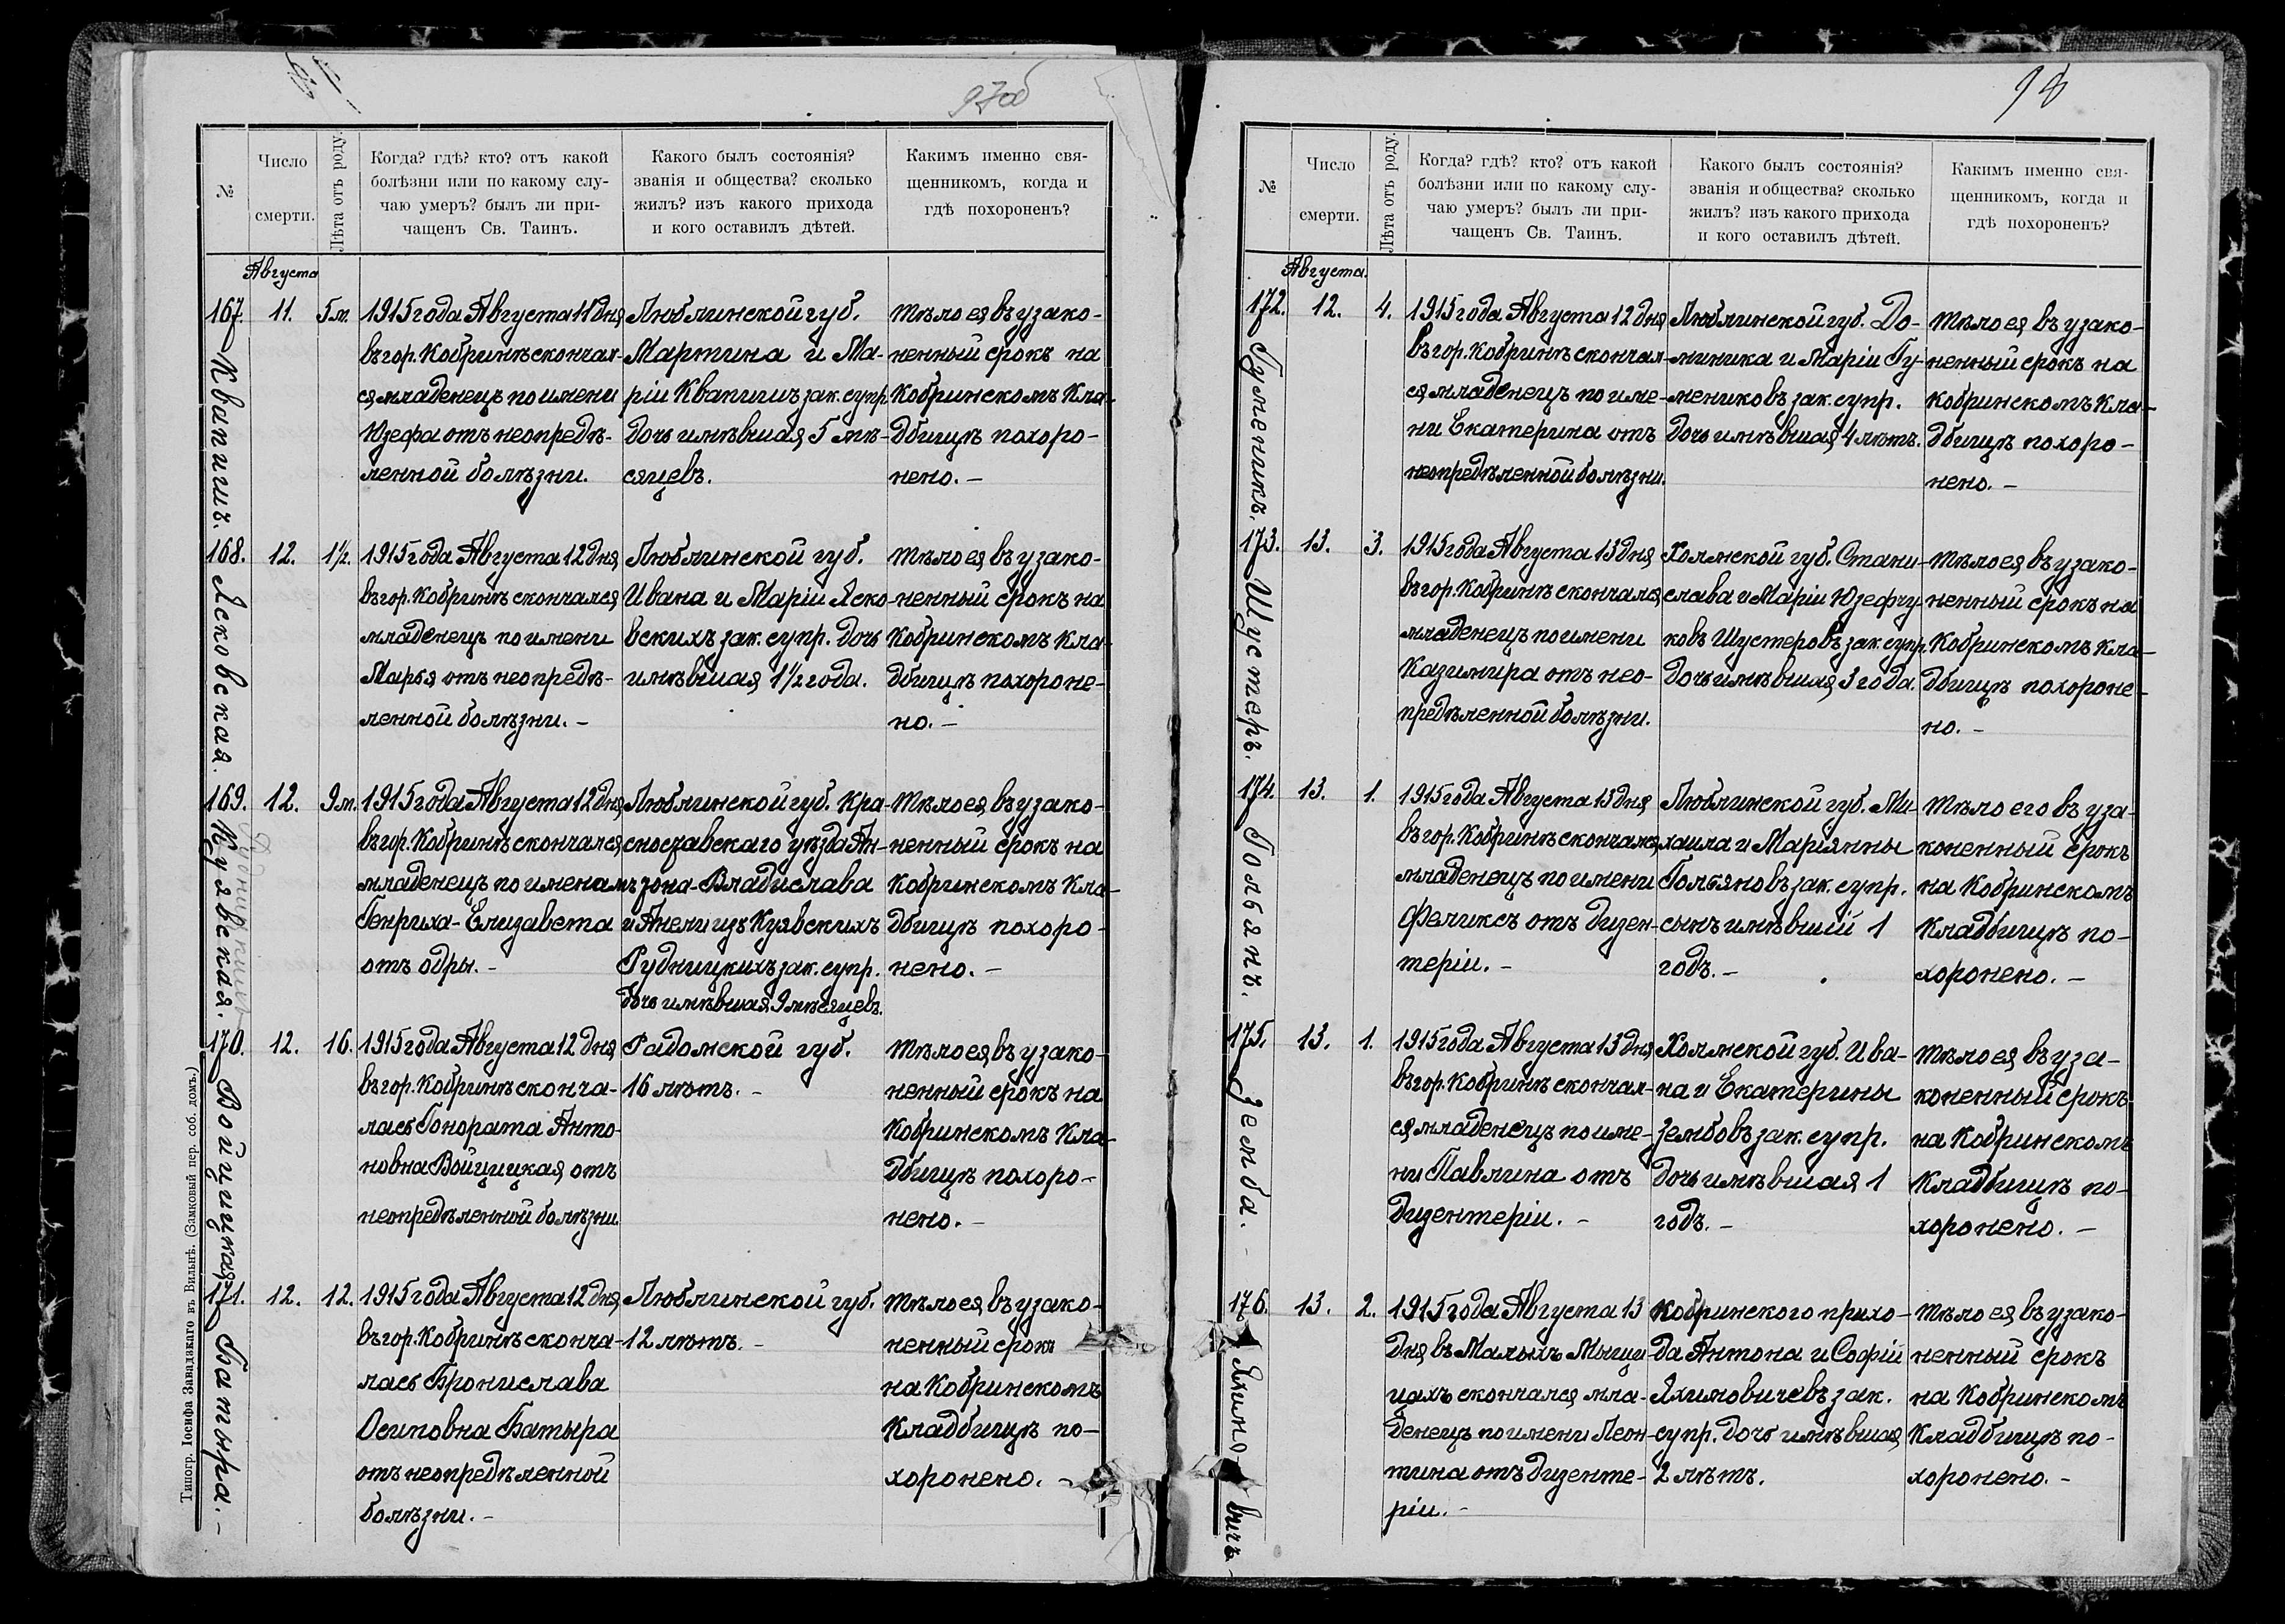 97об
№
Число
смерти.
Лѣта отъ роду.
Когда? гдѣ? кто? отъ какой
болѣзни или по какому слу-
чаю умеръ? былъ ли при-
чащенъ Св. Таинъ.
Какого былъ состоянія?
званія и общества? сколько
жилъ? изъ какого прихода
и кого оставилъ дѣтей.
Какимъ именно свя-
щенникомъ, когда и
гдѣ похороненъ?
Августа
167.
Квапишъ.
11.
5 м.
1915 года Августа 11 дня
въ гор. Кобринѣ скончал-
ся младенецъ по имени
Юзефа отъ неопредѣ-
ленной болѣзни.
Люблинской губ.
Мартина и Ма-
ріи Квапишъ зак. супр.
дочь имѣвшая 5 мѣ-
сяцевъ.
Тѣло ея въ узако-
ненный срокъ на
Кобринскомъ кла-
дбищѣ похоро-
нено. –
168.
Ясковская.
12.
1½.
1915 года Августа 12 дня
въ гор. Кобринѣ скончался
младенецъ по имени
Марья отъ неопредѣ-
ленной болѣзни. –
Люблинской губ.
Ивана и Маріи Яско-
вскихъ зак. супр. дочь
имѣвшая 1½ года.
Тѣло ея въ узако-
ненный срокъ на
Кобринскомъ кла-
дбищѣ похороне-
но. –
169.
Куявская.
12.
9 м.
1915 года Августа 12 дня
въ гор. Кобринѣ скончался
младенецъ по именамъ
Генриха-Елизавета
отъ одры. –
Люблинской губ. Кра-
сноставскаго уѣзда Ан-
зона-Владислава
и Анели изъ Куявскихъ
Рудницкихъ зак. супр.
дочь имѣвшая 9 мѣсяцевъ.
Тѣло ея въ узако-
ненный срокъ на
Кобринскомъ кла-
дбищѣ похоро-
нено. –
170.
Войцицкая.
12.
16.
1915 года Августа 12 дня
въ гор. Кобринѣ сконча-
лась Гонората Анто-
новна Войцицкая, отъ
неопредѣленной болѣзни
Радомской губ.
16 лѣтъ. –
Тѣло ея въ узако-
ненный срокъ на
Кобринскомъ кла-
дбищѣ похоро-
нено. –
171.
Батыра. –
12.
12.
1915 года Августа 12 дня
въ гор. Кобринѣ сконча-
лась Бронислава
Осиповна Батыра
отъ неопредѣленной
болѣзни. –
Люблинской губ.
12 лѣтъ. –
Тѣло ея въ узако-
ненный срокъ
на Кобринскомъ
кладбищѣ по-
хоронено. –
Типогр. Іосифа Завадзкаго въ Вильнѣ. (Замковый пер. соб. домъ.)
98
№
Число
смерти.
Лѣта отъ роду.
Когда? гдѣ? кто? отъ какой
болѣзни или по какому слу-
чаю умеръ? былъ ли при-
чащенъ Св. Таинъ.
Какого былъ состоянія?
званія и общества? сколько
жилъ? изъ какого прихода
и кого оставилъ дѣтей.
Какимъ именно свя-
щенникомъ, когда и
гдѣ похороненъ?
Августа.
172.
Гуменикъ.
12.
4.
1915 года Августа 12 дня
въ гор. Кобринѣ скончал-
ся младенецъ по име-
ни Екатерина отъ
неопредѣленной болѣзни.
Люблинской губ. До-
миника и Маріи Гу-
мениковъ зак. супр.
дочь имѣвшая 4 лѣтъ.
Тѣло ея въ узако-
ненный срокъ на
кобринскомъ кла-
дбищѣ похоро-
нено. –
173.
Шустеръ.
13.
3.
1915 года Августа 13 дня
въ гор. Кобринѣ скончался
младенецъ по имени
Казимира отъ нео-
предѣленной болѣзни.
Холмской губ. Стани-
слава и Маріи Юзефчу-
ковъ Шустеровъ зак. супр.
дочь имѣвшая 3 года.
Тѣло ея въ узако-
ненный срокъ на
Кобринскомъ кла-
дбищѣ похороне-
но. –
174.
Гольянъ.
13.
1.
1915 года Августа 13 дня
въ гор. Кобринѣ скончался
младенецъ по имени
Феликсъ отъ дизен-
теріи. –
Люблинской губ. Ми-
хаила и Маріянны
Гольяновъ зак. супр.
сынъ имѣвшій 1
годъ. –
Тѣло его въ уза-
коненный срокъ
на Кобринскомъ
кладбищѣ по-
хоронено. –
175.
Земба. –
13.
1.
1915 года Августа 13 дня
въ гор. Кобринѣ скончал-
ся младенецъ по име-
ни Павлина отъ
дизентеріи. –
Холмской губ. Ива-
на и Екатерины
Зембовъ зак. супр.
дочь имѣвшая 1
годъ. –
Тѣло ея въ уза-
коненный срокъ
на Кобринскомъ
кладбищѣ по-
хоронено. –
176.
Яхимовичъ. –
13.
2.
1915 года Августа 13
дня въ Малыхъ Мыщи-
цахъ скончался мла-
денецъ по имени Леон-
тина отъ дизенте-
ріи. –
Кобринского прихо-
да Антона и Софіи
Яхимовичевъ зак.
супр. дочь имѣвшая
2 лѣтъ.
Тѣло ея въ узако-
ненный срокъ
на Кобринскомъ
кладбищѣ по-
хоронено. –